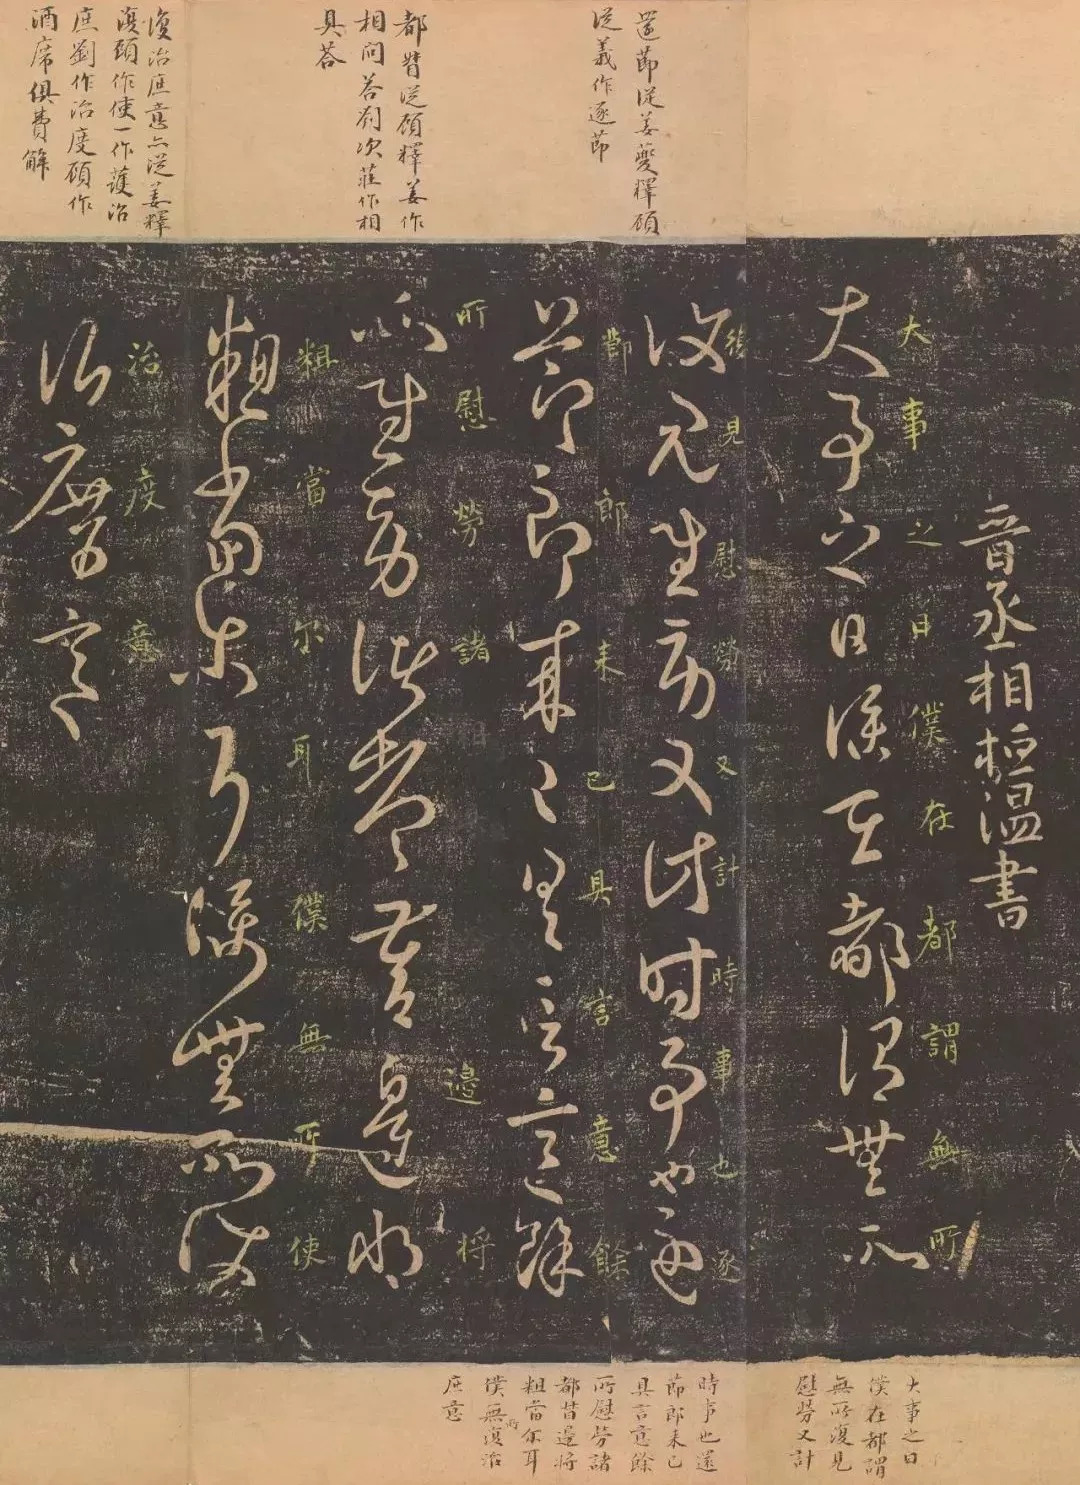 還節從姜夔釋顧
從義作逐節
都昔從顧釋姜作
相問答劉次莊作相
具答
復治庶意亦從姜釋
復顧作使一作護治
庶劉作治度顧作
酒席俱費解
晉丞相桓温書
大事之日僕在都謂無所
後見慰勞又計時事也逐
節郎未已具言意餘
所慰勞諸邊將
粗當尔耳僕無所使
治度意
大事之日
僕在都謂
無所復見
慰勞又計
時事也還
節郎未已
具言意餘
所慰勞諸
都昔邊將
粗當尔耳
僕無所復治
庶意